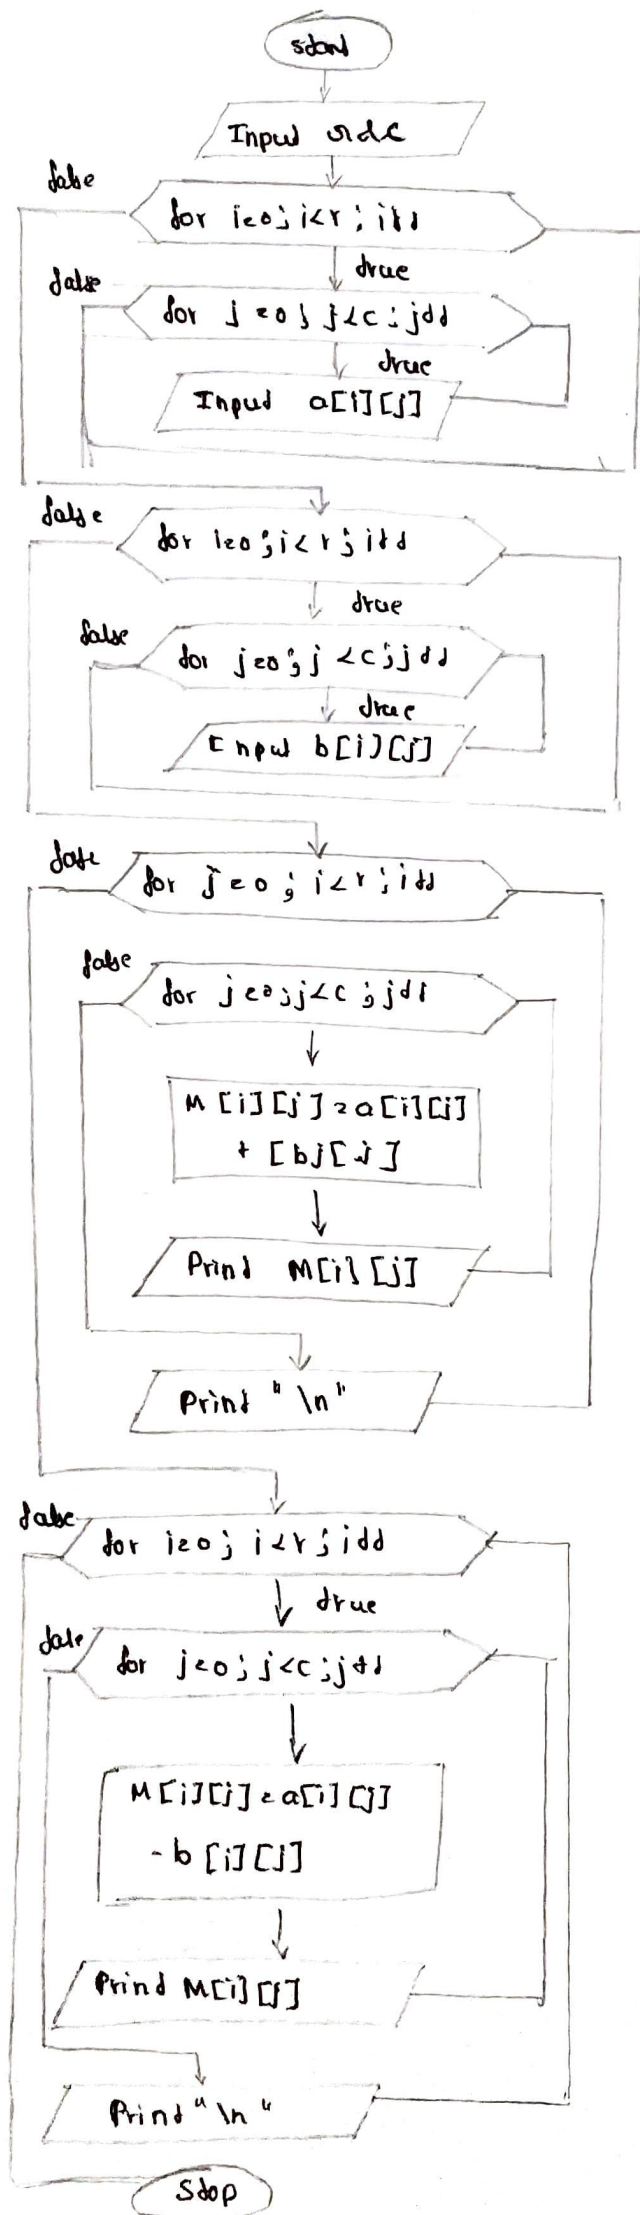 start
Input r & c
false
for i=0; i<r; i++
true
false
for j=0; j<c; j++
true
Input a[i][j]
false
for i=0; i<r; i++
true
false
for j=0; j<c; j++
true
Input b[i][j]
false
for j=0; i<r; i++
false
for j=0; j<c; j++
M[i][j] = a[i][j]
+ [bj[j]
Print M[i][j]
Print "\n"
false
for i=0; i<r; i++
true
false
for j=0; j<c; j++
M[i][j] = a[i][j]
- b[i][j]
Print M[i][j]
Print "\n"
Stop